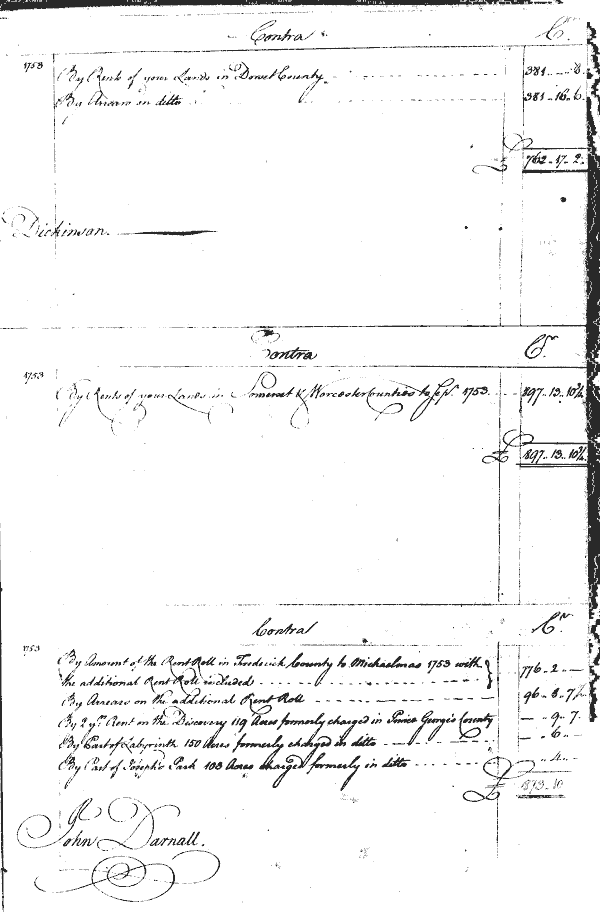 Contra Cr.
1753 By Rents of your Lands in Dorset County 381 .. .. 8
By Arrears on ditto 381 .. 16 .. 6
£ 762 .. 17 .. 2
Dickinson.
Contra Cr.
1753 By Rents of your Lands in Somerset & Worcester Counties to Sepr. 1753 897 .. 13 .. 10¾
£ 897 .. 13 .. 10¾
Contra Cr.
1753 By Amount of the Rent Roll in Frederick County to Michaelmas 1753 with
the additional Rent Roll included 776 .. 2 .. —
By Arrears on the additional Rent Roll 96 .. 8 .. 7
By 2 yrs. Rent on the Discovery 119 Acres formerly charged in Prince George's County — .. 9 .. 7
By Part of Labyrinth 150 Acres formerly charged in ditto — .. 6 .. —
By Part of Joseph's Park 103 Acres charged formerly in ditto .. 4 ..
£ 873 .. 10
John Darnall.